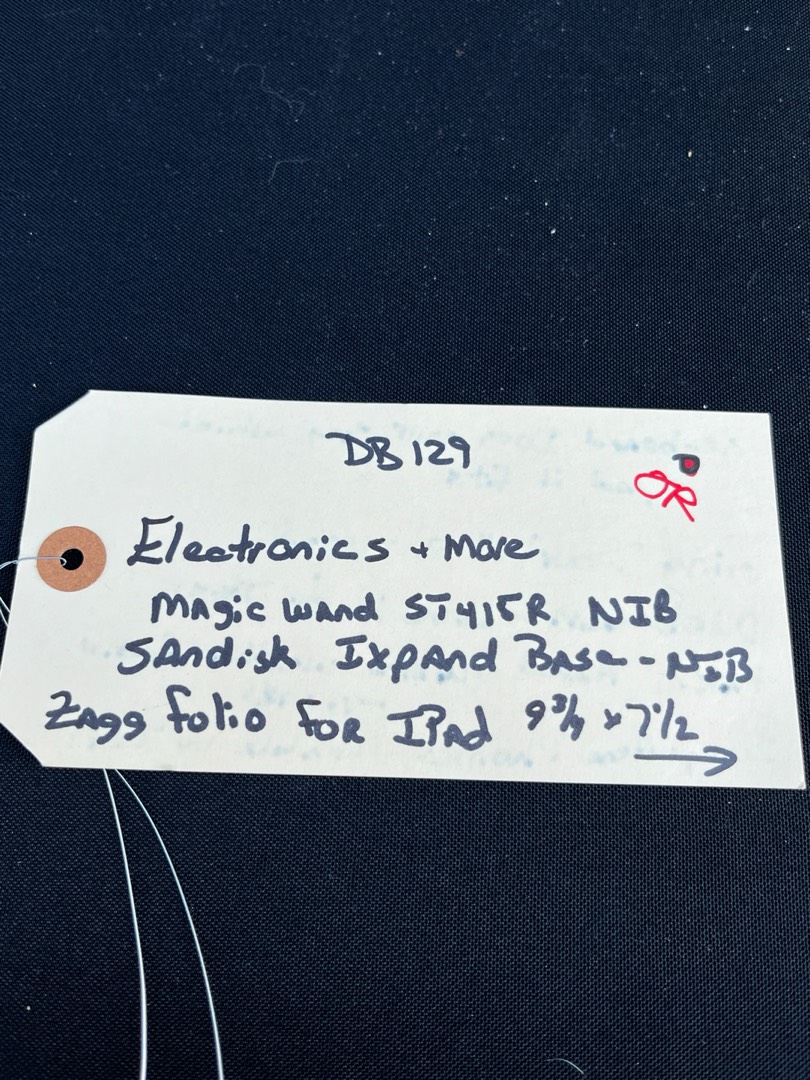 DB129
OR
Electronics + More
Magic Wand ST415R NIB
SAndisk IxpAnd BASe - NIB
ZAgg folio foR IPAd 9 3/4 x 7 1/2